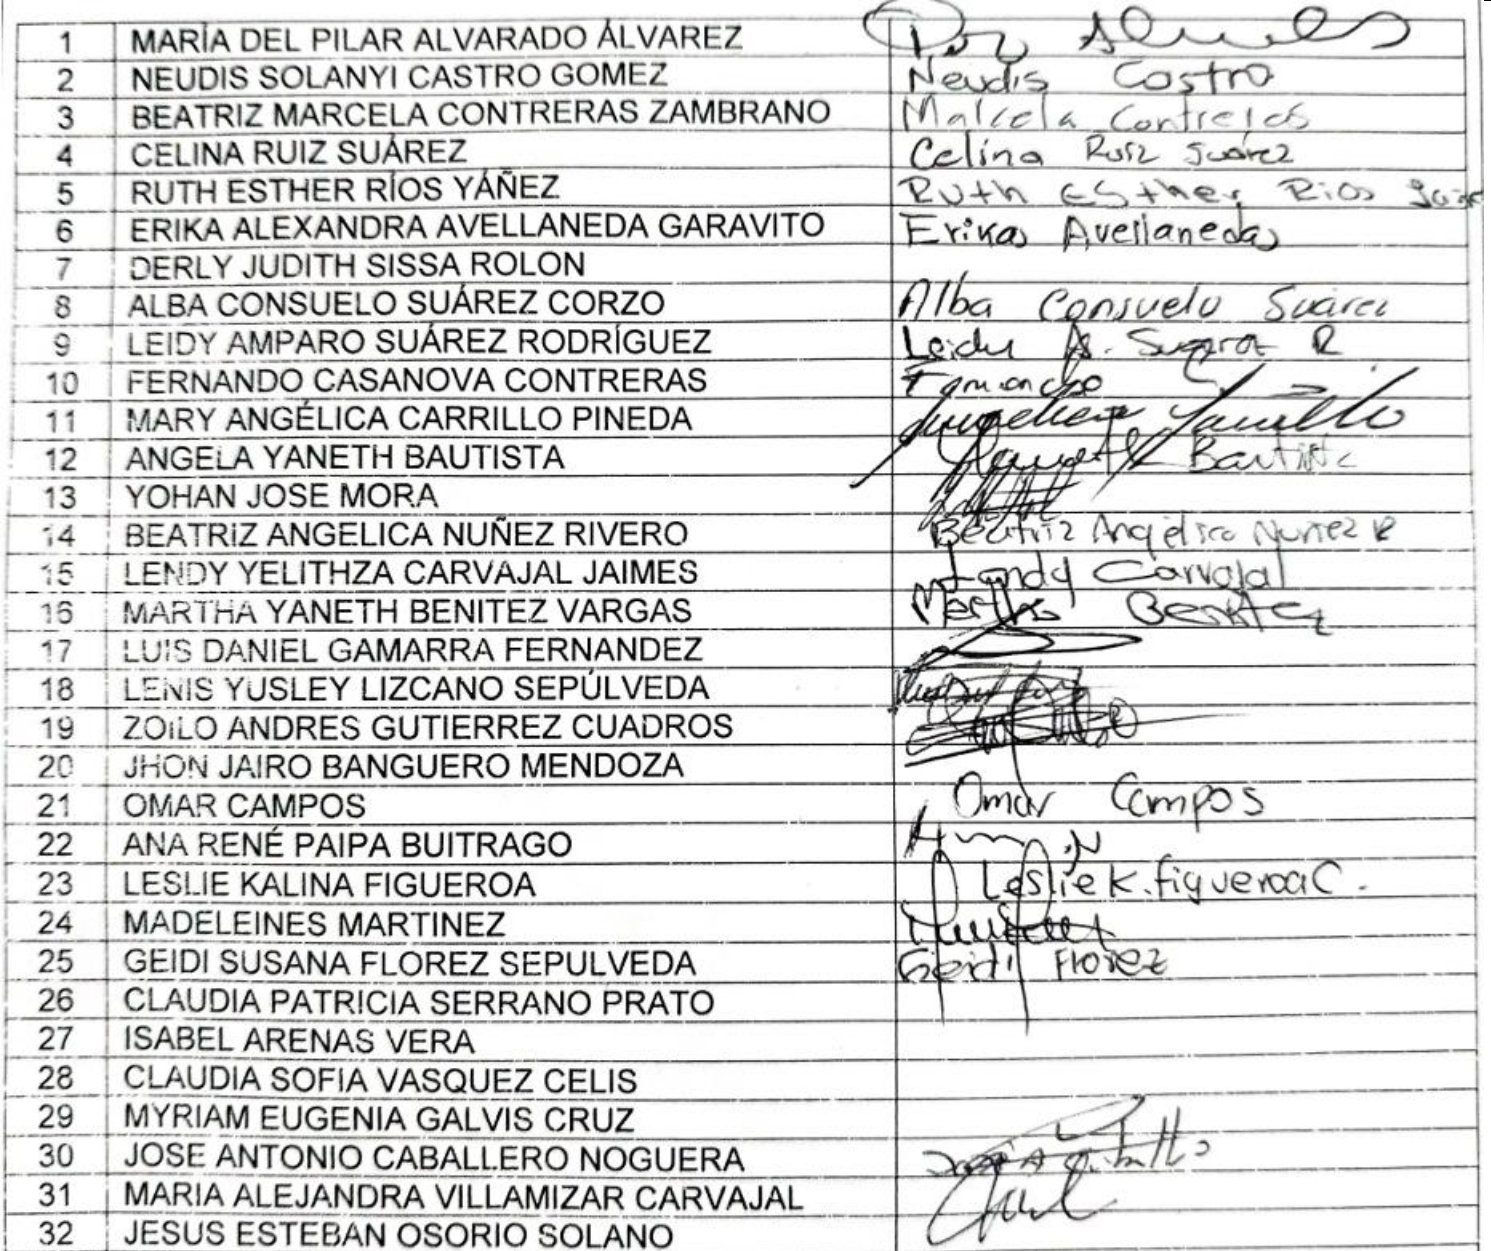 1 MARÍA DEL PILAR ALVARADO ÁLVAREZ
2 NEUDIS SOLANYI CASTRO GOMEZ Neudis Castro
3 BEATRIZ MARCELA CONTRERAS ZAMBRANO Marcela Contreras
4 CELINA RUIZ SUÁREZ Celina Ruiz Suárez
5 RUTH ESTHER RÍOS YÁÑEZ Ruth Esther Rios
6 ERIKA ALEXANDRA AVELLANEDA GARAVITO Erika Avellaneda
7 DERLY JUDITH SISSA ROLON
8 ALBA CONSUELO SUÁREZ CORZO Alba Consuelo Suárez
9 LEIDY AMPARO SUÁREZ RODRÍGUEZ Leidy A. Suarez R
10 FERNANDO CASANOVA CONTRERAS
11 MARY ANGÉLICA CARRILLO PINEDA Angelica Carrillo
12 ANGELA YANETH BAUTISTA Yaneth Bautista
13 YOHAN JOSE MORA
14 BEATRIZ ANGELICA NUÑEZ RIVERO Beatriz Angélica Nuñez R
15 LENDY YELITHZA CARVAJAL JAIMES Lendy Carvajal
16 MARTHA YANETH BENITEZ VARGAS Martha Benitez
17 LUIS DANIEL GAMARRA FERNANDEZ
18 LENIS YUSLEY LIZCANO SEPÚLVEDA
19 ZOILO ANDRES GUTIERREZ CUADROS
20 JHON JAIRO BANGUERO MENDOZA
21 OMAR CAMPOS Omar Campos
22 ANA RENÉ PAIPA BUITRAGO
23 LESLIE KALINA FIGUEROA Leslie K. figueroa C.
24 MADELEINES MARTINEZ
25 GEIDI SUSANA FLOREZ SEPULVEDA Geidi Florez
26 CLAUDIA PATRICIA SERRANO PRATO
27 ISABEL ARENAS VERA
28 CLAUDIA SOFIA VASQUEZ CELIS
29 MYRIAM EUGENIA GALVIS CRUZ
30 JOSE ANTONIO CABALLERO NOGUERA
31 MARIA ALEJANDRA VILLAMIZAR CARVAJAL
32 JESUS ESTEBAN OSORIO SOLANO